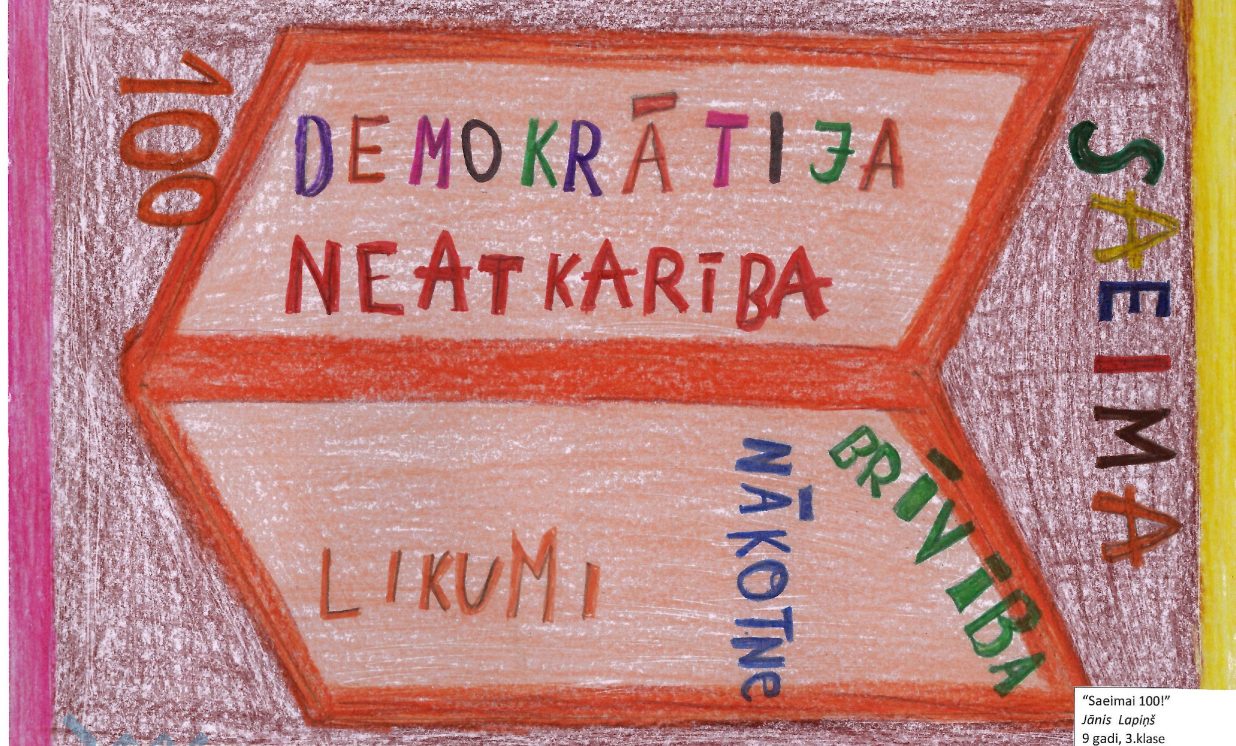 100
DEMOKRĀTIJA
NEATKARĪBA
SAEIMA
LIKUMI
NĀKOTNe
BRĪVĪBA
“Saeimai 100!”
Jānis Lapiņš
9 gadi, 3.klase